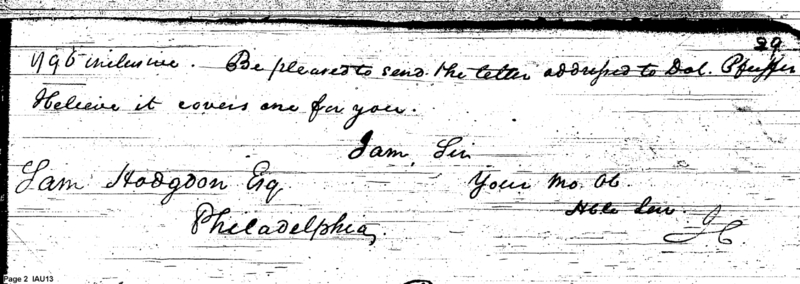 29
1795 inclusive. Be pleased to send the letter addressed to Dol. Pfeiffer
I believe it covers one for you.
I am, Sir
Sam Hodgdon Esq Your Mo. Ob.
Hble Serv.
Philadelphia, JC
Page 2 IAU13